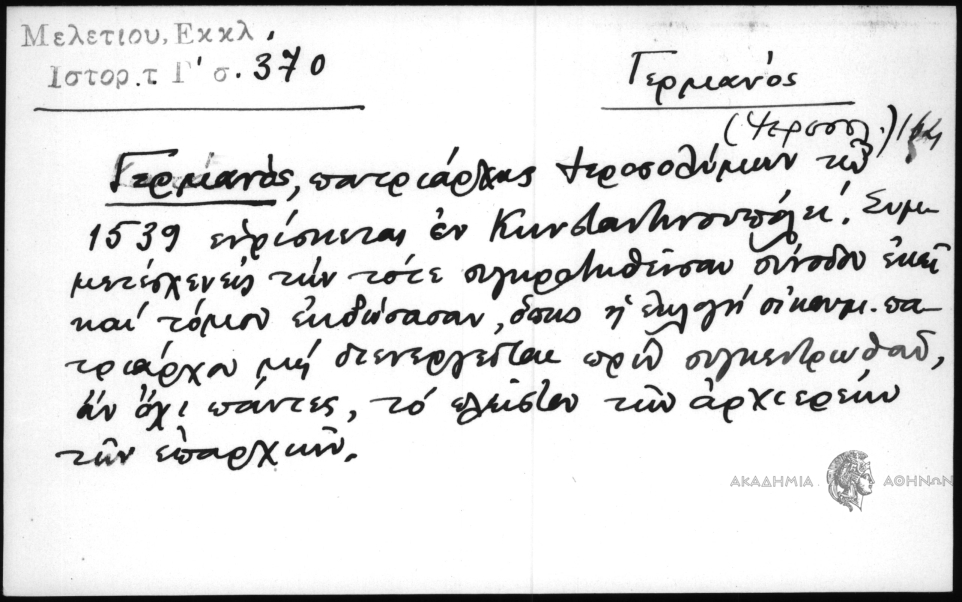 Μελετίου, Εκκλ.
Ιστορ. τ. Γ' σ. 370
Γερμανός
(Ἱεροσολ.)
Γερμανός, πατριάρχης Ἱεροσολύμων τῷ
1539 εὑρίσκεται ἐν Κωνσταντινουπόλει. Συμ-
μετέσχεν εἰς τήν τότε συγκροτηθεῖσαν σύνοδον ἐκεῖ
καί τόμον ἐκδώσασαν, ὅπως ἡ ἐκλογή οἰκουμ. πα-
τριάρχου μή διενεργεῖται πρίν συγκεντρωθοῦν,
ἄν ὄχι πάντες, τό πλεῖστον τῶν ἀρχιερέων
τῶν ἐπαρχιῶν.
ΑΚΑΔΗΜΙΑ ΑΘΗΝΩΝ